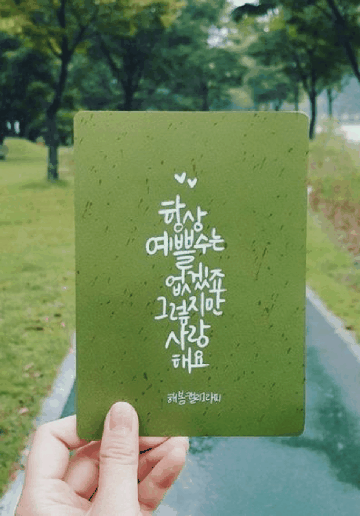 항상
예쁠수는
없겠죠
그렇지만
사랑
해요
해봄캘리그라피